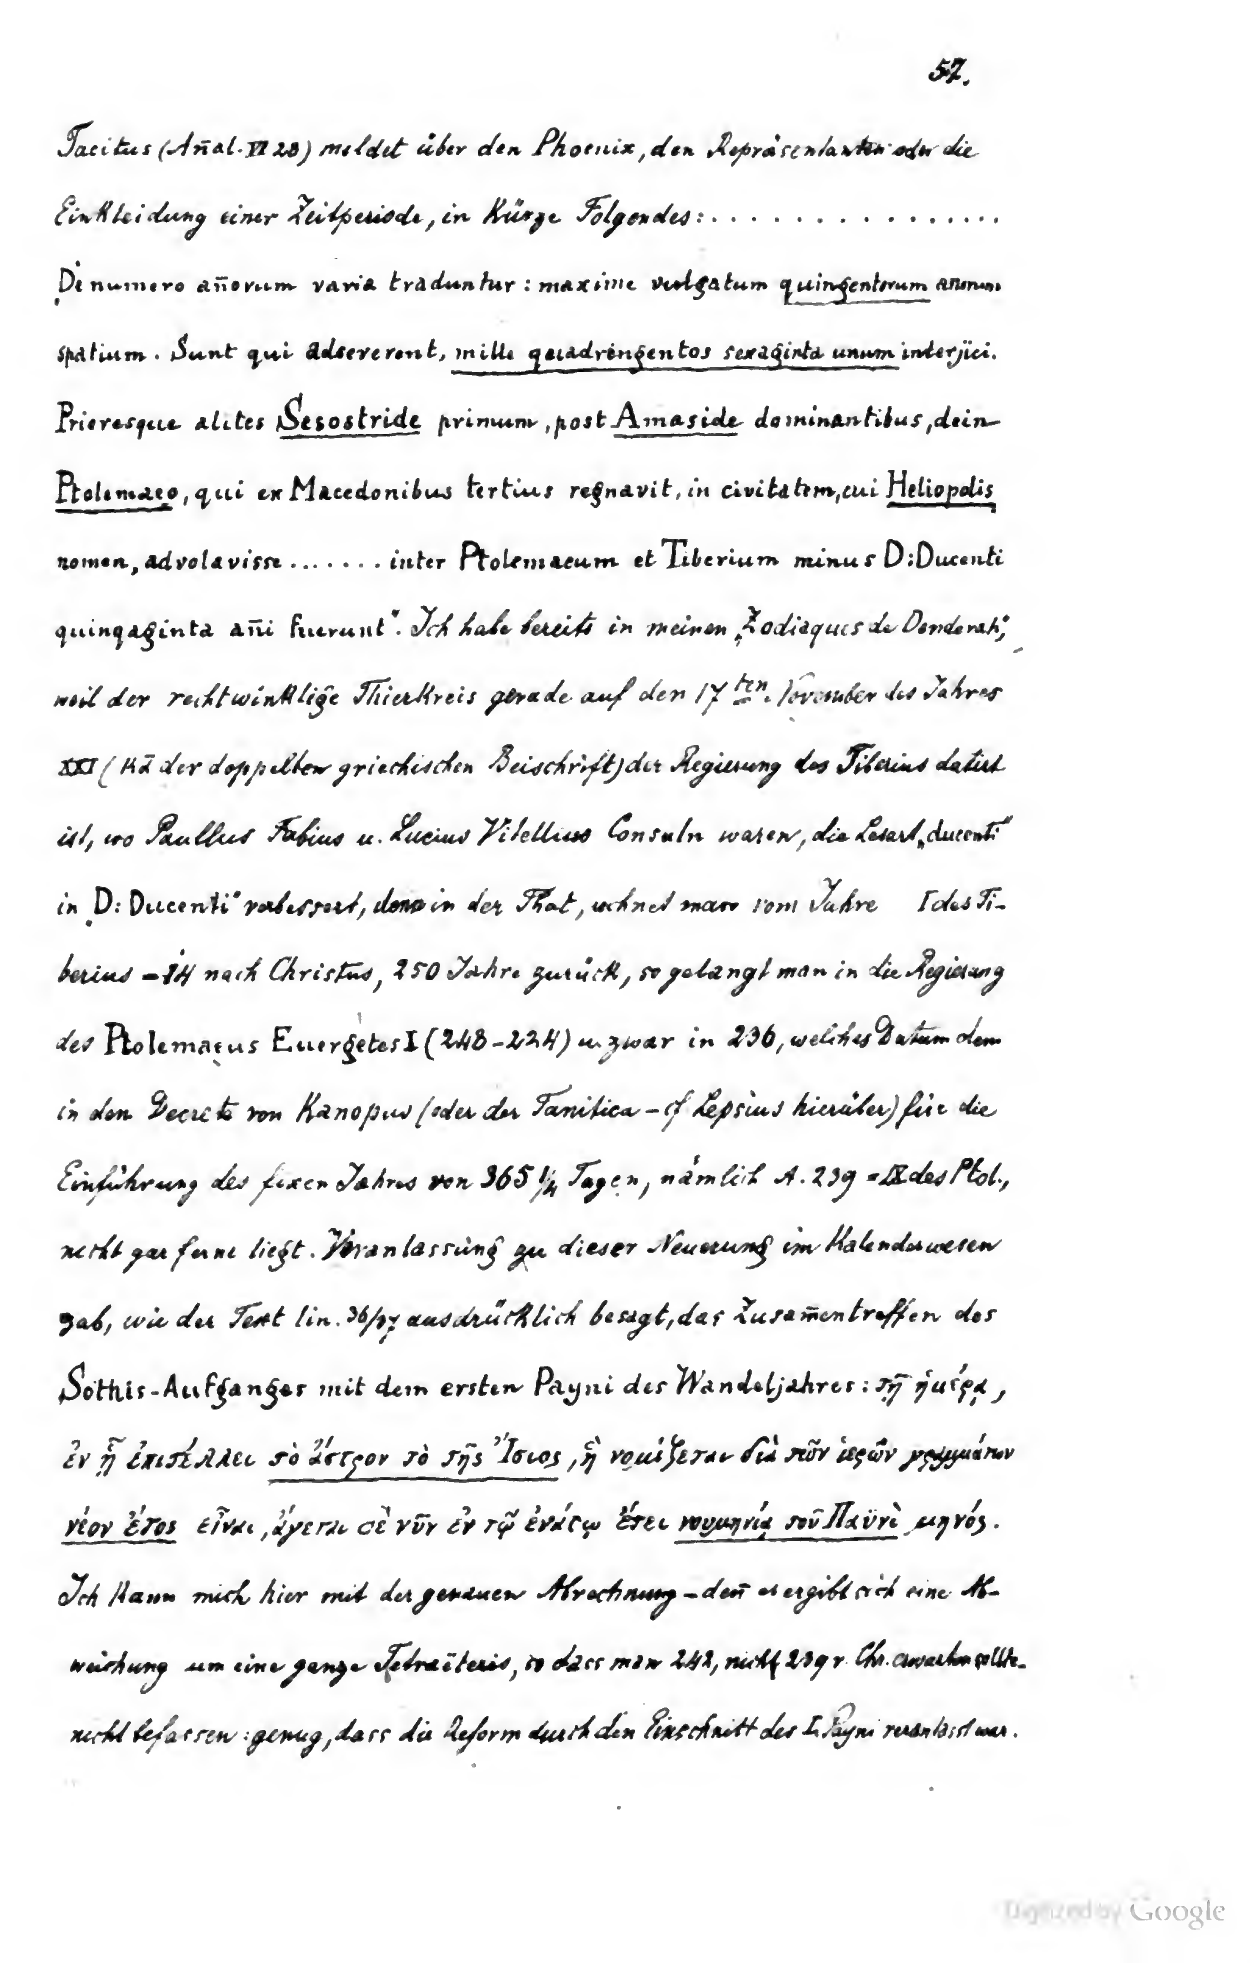 57.
Tacitus (Añal. VI 28) meldet über den Phoenix, den Repräsentanten oder die
Einkleidung einer Zeitperiode, in Kürze Folgendes: . . . . . . . . . . . . . . . .
„De numero añorum varia traduntur: maxime vulgatum quingentorum annorum
spatium. Sunt qui adseverent, mille quadringentos sexaginta unum interjici.
Prioresque alites Sesostride primum, post Amaside dominantibus, dein
Ptolemaeo, qui ex Macedonibus tertius regnavit, in civitatem, cui Heliopolis
nomen, advolavisse ....... inter Ptolemaeum et Tiberium minus D:Ducenti
quinqaginta añi fuerunt“. Ich habe bereits in meinen „Zodiaques de Denderah“,
weil der rechtwinklige Thierkreis gerade auf den 17ten November des Jahres
XXI (κā der doppelten griechischen Beischrift) der Regierung des Tiberius datirt
ist, wo Paullus Fabius u. Lucius Vitellius Consuln waren, die Lesart „ducenti“
in „D: Ducenti“ verbessert, denn in der That, rechnet man vom Jahre I des Ti-
berius = 14 nach Christus, 250 Jahre zurück, so gelangt man in die Regierung
des Ptolemaeus Euergetes I (248-224) u. zwar in 236, welches Datum dem
in den Decrete von Kanopus (oder der Tanitica - cf Lepsius hierüber) für die
Einführung des fixen Jahres von 365 1/4 Tagen, nämlich A. 239 = IX des Ptol.,
nicht gar ferne liegt. Veranlassung zu dieser Neuerung im Kalenderwesen
gab, wie der Text lin. 36/37 ausdrücklich besagt, das Zusam̄entreffen des
Sothis-Aufganges mit dem ersten Payni des Wandeljahres: τῇ ἡμέρᾳ,
ἐν ᾗ ἐπιτέλλει τὸ ἄστρον τὸ τῆς Ἴσιος, ἣ νομίζεται διὰ τῶν ἱερῶν γραμμάτων
νέον ἔτος εἶναι, ἄγεται δὲ νῦν ἐν τῷ ἐνάτῳ ἔτει νουμηνίᾳ τοῦ Παϋνὶ μηνός.
Ich kann mich hier mit der genauen Abrechnung - deñ es ergibt sich eine Ab-
weichung um eine ganze Tetraëteris, so dass man 242, nicht 239 v. Chr. erwarten sollte -
nicht befassen: genug, dass die Reform durch den Einschnitt des I. Payni veranlasst war.
Digitized by Google